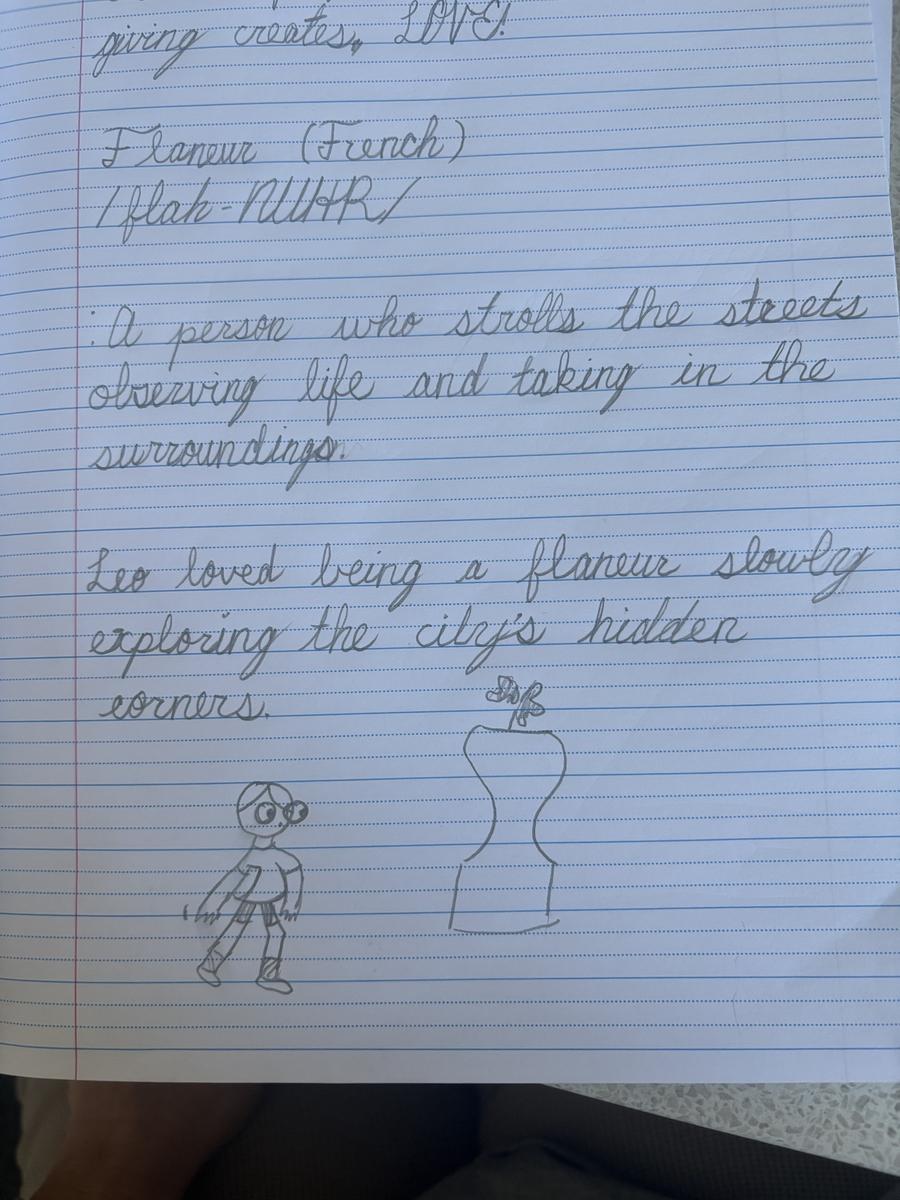 giving creates, LOVE!
Flaneur (French)
/flah-NUHR/
:A person who strolls the streets
observing life and taking in the
surroundings.
Leo loved being a flaneur slowly
exploring the city's hidden
corners.